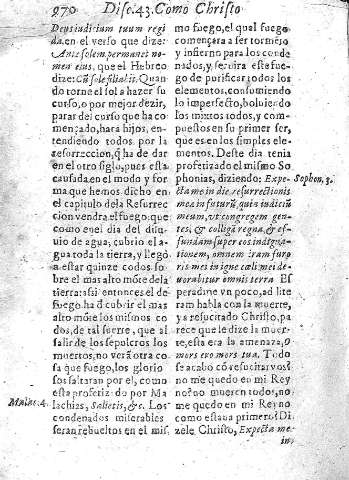 970 Disc.43.Como Christo
Deus iudicium tuum regi
da. en el verso que dize:
Ante solem permanet no-
men eius, que el Hebreo
dize: Cũ sole filialis. Quan
do torne el sol a hazer su
curso, o por mejor dezir,
parar del curso que ha co-
mençado, hara hijos, en-
tendiendo todos por la
resurreccion, q̃ ha de dar
en el otro siglo, pues esta
causada en el modo y for-
ma que hemos dicho en
el capitulo de la Resurrec
cion vendra el fuego: que
como en el dia del dilu-
uio de agua, cubrio el a-
gua toda la tierra, y llegò
a estar quinze codos so-
bre el mas alto mõte de la
tierra: assi entonces el de
fuego ha d̃ cubrir el mas
alto mõte los mismos co
dos, de tal suerte, que al
salir de los sepulcros los
muertos, no verã otra co
sa que fuego, los glorio
sos saltaran por el, como
esta profetizado por Ma
lachias, Salietis, &c. Los
condenados miserables
seran rebueltos en el mis.
Malac. 4.
mo fuego, el qual fuego
començara a ser tormẽto
y infierno para los conde
nados, y seruira este fue-
go de purificar todos los
elementos, consumiendo
lo imperfecto, boluiendo
los mixtos todos, y com-
puestos en su primer ser,
que es en los simples ele-
mentos. Deste dia tenia
profetizado el mismo So
phonias, diziendo: Expe-
cta me in die resurrectionis
mee in futurũ, quia iudiciũ
meum, vt congregem gen-
tes, & colligã regna, & ef-
fundam super eos indigna-
tionem, omnem iram furo
ris mei in igne cæli mei de-
uorabitur omnis terra. Es
peradme vn poco, ad lite
ram habla con la muerte,
y a resucitado Christo, pa
rece que le dize la muer-
te, esta era la amenaza, O
mors ero mors tua. Todo
se acabo cõ resucitar vos?
no me quedo en mi Rey
no? no mueren todos, no
me quedo en mi Reyno
como estaua primero? Di
zele Christo, Expecta me
in.
Sophon. 3.